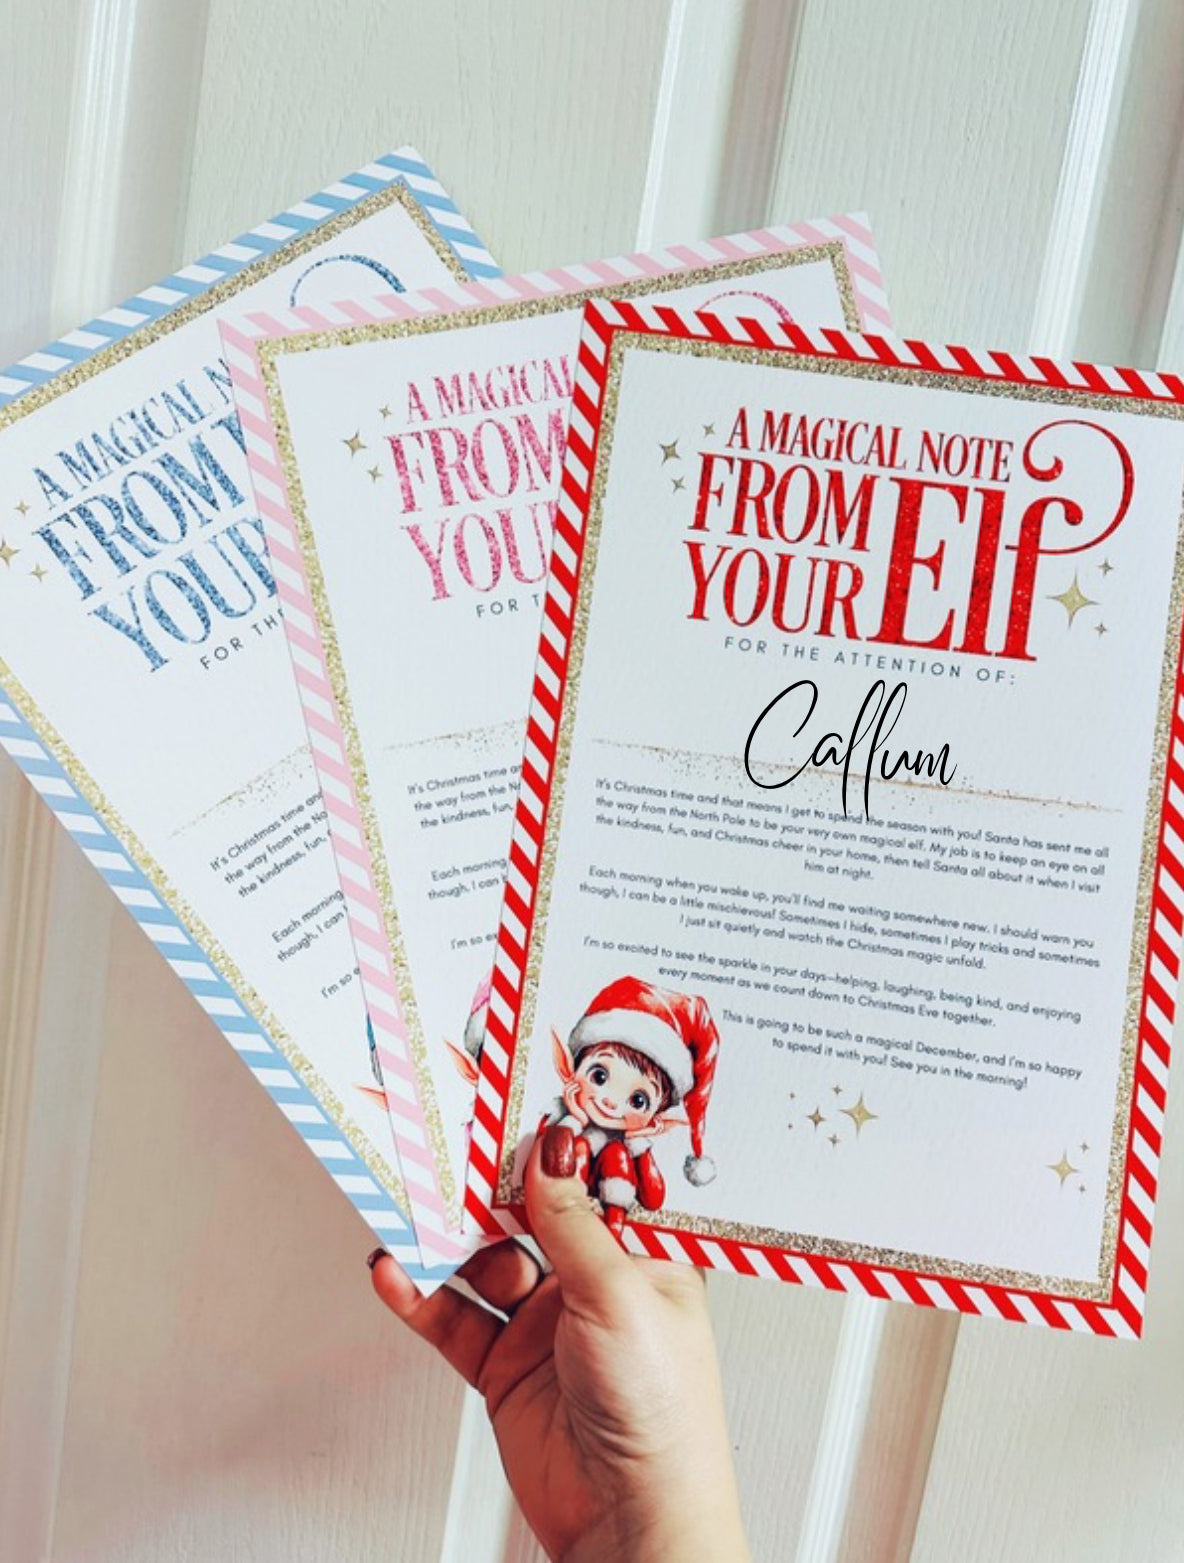 A MAGICAL N
FROM
YOUR
FOR TH
It's Christmas time and
the way from the No
the kindness, fun,
Each morning
though, I can
I'm so e
A MAGICAL
FROM
YOU
FOR T
It's Christmas time a
the way from the N
the kindness, fun,
Each morning
though, I can b
I'm so ex
A MAGICAL NOTE
FROM
YOUR Elf
FOR THE ATTENTION OF:
Callum
It's Christmas time and that means I get to spend the season with you! Santa has sent me all
the way from the North Pole to be your very own magical elf. My job is to keep an eye on all
the kindness, fun, and Christmas cheer in your home, then tell Santa all about it when I visit
him at night.
Each morning when you wake up, you'll find me waiting somewhere new. I should warn you
though, I can be a little mischievous! Sometimes I hide, sometimes I play tricks and sometimes
I just sit quietly and watch the Christmas magic unfold.
I'm so excited to see the sparkle in your days—helping, laughing, being kind, and enjoying
every moment as we count down to Christmas Eve together.
This is going to be such a magical December, and I'm so happy
to spend it with you! See you in the morning!